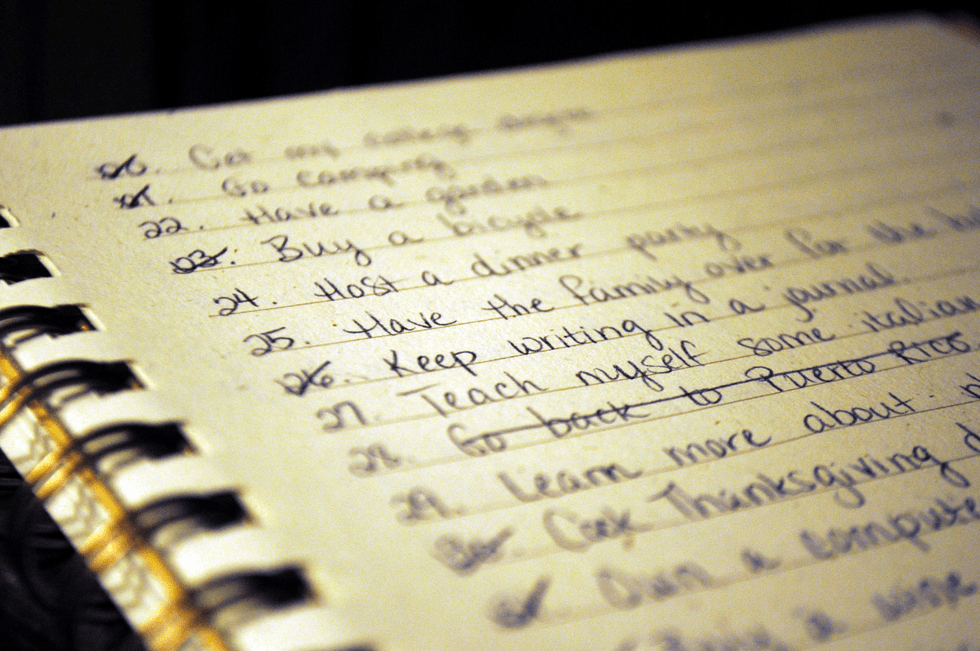 20. Get my college degree
21. Go camping
22. Have a garden
23. Buy a bicycle
24. Host a dinner party
25. Have the family over for the
26. Keep writing in a journal.
27. Teach myself some italian
28. Go back to Puerto Rico.
29. Learn more about
30. Cook Thanksgiving
31. Own a compute
a wine